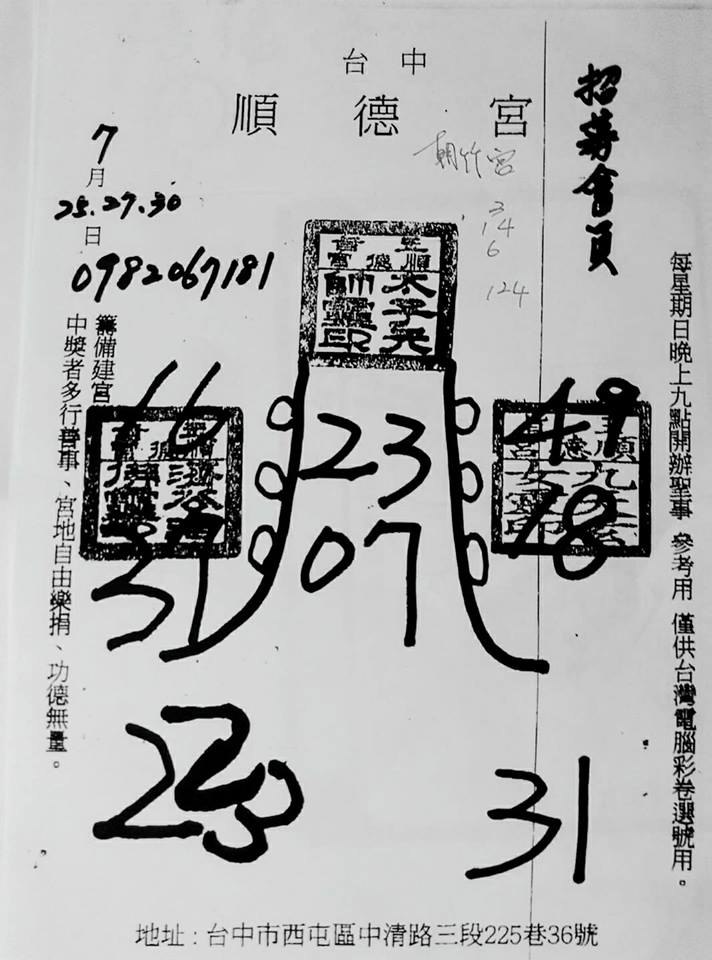 台中
順德宮
招募會員
朝竹宮
3
14
6
124
7
月
25.27.30
日
0982067181
每星期日晚上九點開辦聖事 參考用 僅供台灣電腦彩卷選號用。
籌備建宮
中獎者多行善事、宮地自由樂捐、功德無量。
太子元
帥靈印
16
23
49
07
18
31
地址：台中市西屯區中清路三段225巷36號